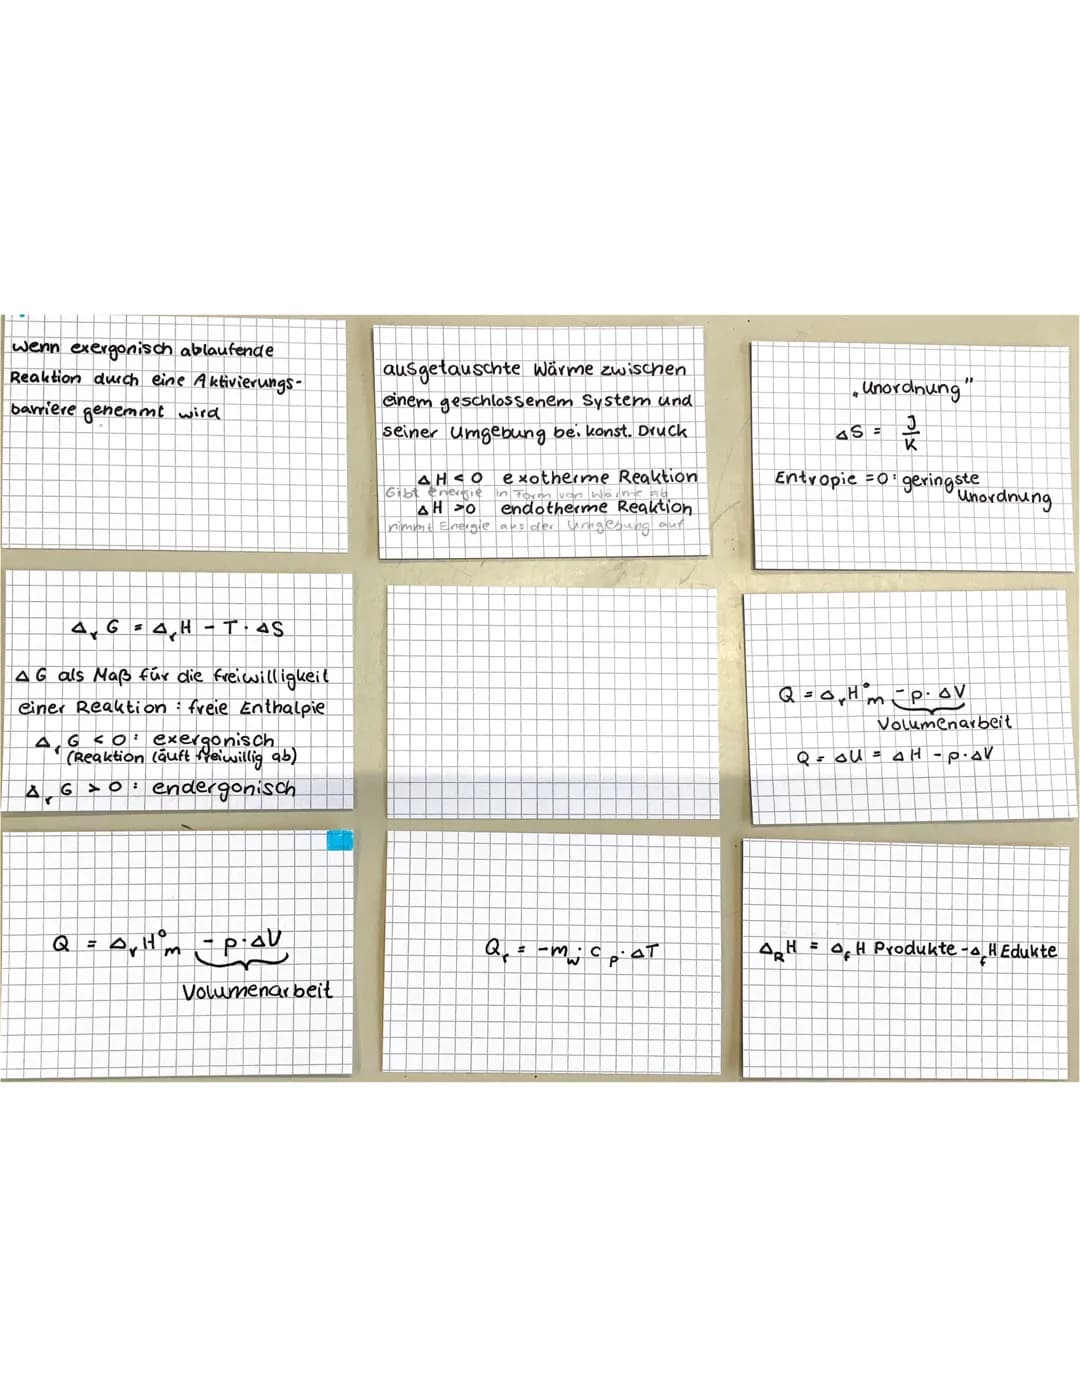 wenn exergonisch ablaufende
Reaktion durch eine Aktivierungs-
barriere gehemmt wird
ausgetauschte Wärme zwischen
einem geschlossenem System und
seiner Umgebung bei konst. Druck
ΔH < 0 exotherme Reaktion
Gibt Energie in Form von Wärme ab
ΔH > 0 endotherme Reaktion
nimmt Energie aus der Umgebung auf
„Unordnung"
ΔS = J/K
Entropie = 0: geringste
Unordnung
ΔrG = ΔrH - T · ΔS
ΔG als Maß für die freiwilligkeit
einer Reaktion : freie Enthalpie
ΔrG < 0: exergonisch
(Reaktion läuft freiwillig ab)
ΔrG > 0: endergonisch
Q = ΔrH°m - p · ΔV
Volumenarbeit
Q = ΔU = ΔH - p·ΔV
Q = ΔrH°m - p·ΔV
Volumenarbeit
Qr = -mw · cp · ΔT
ΔRH = ΔfH Produkte - ΔfH Edukte